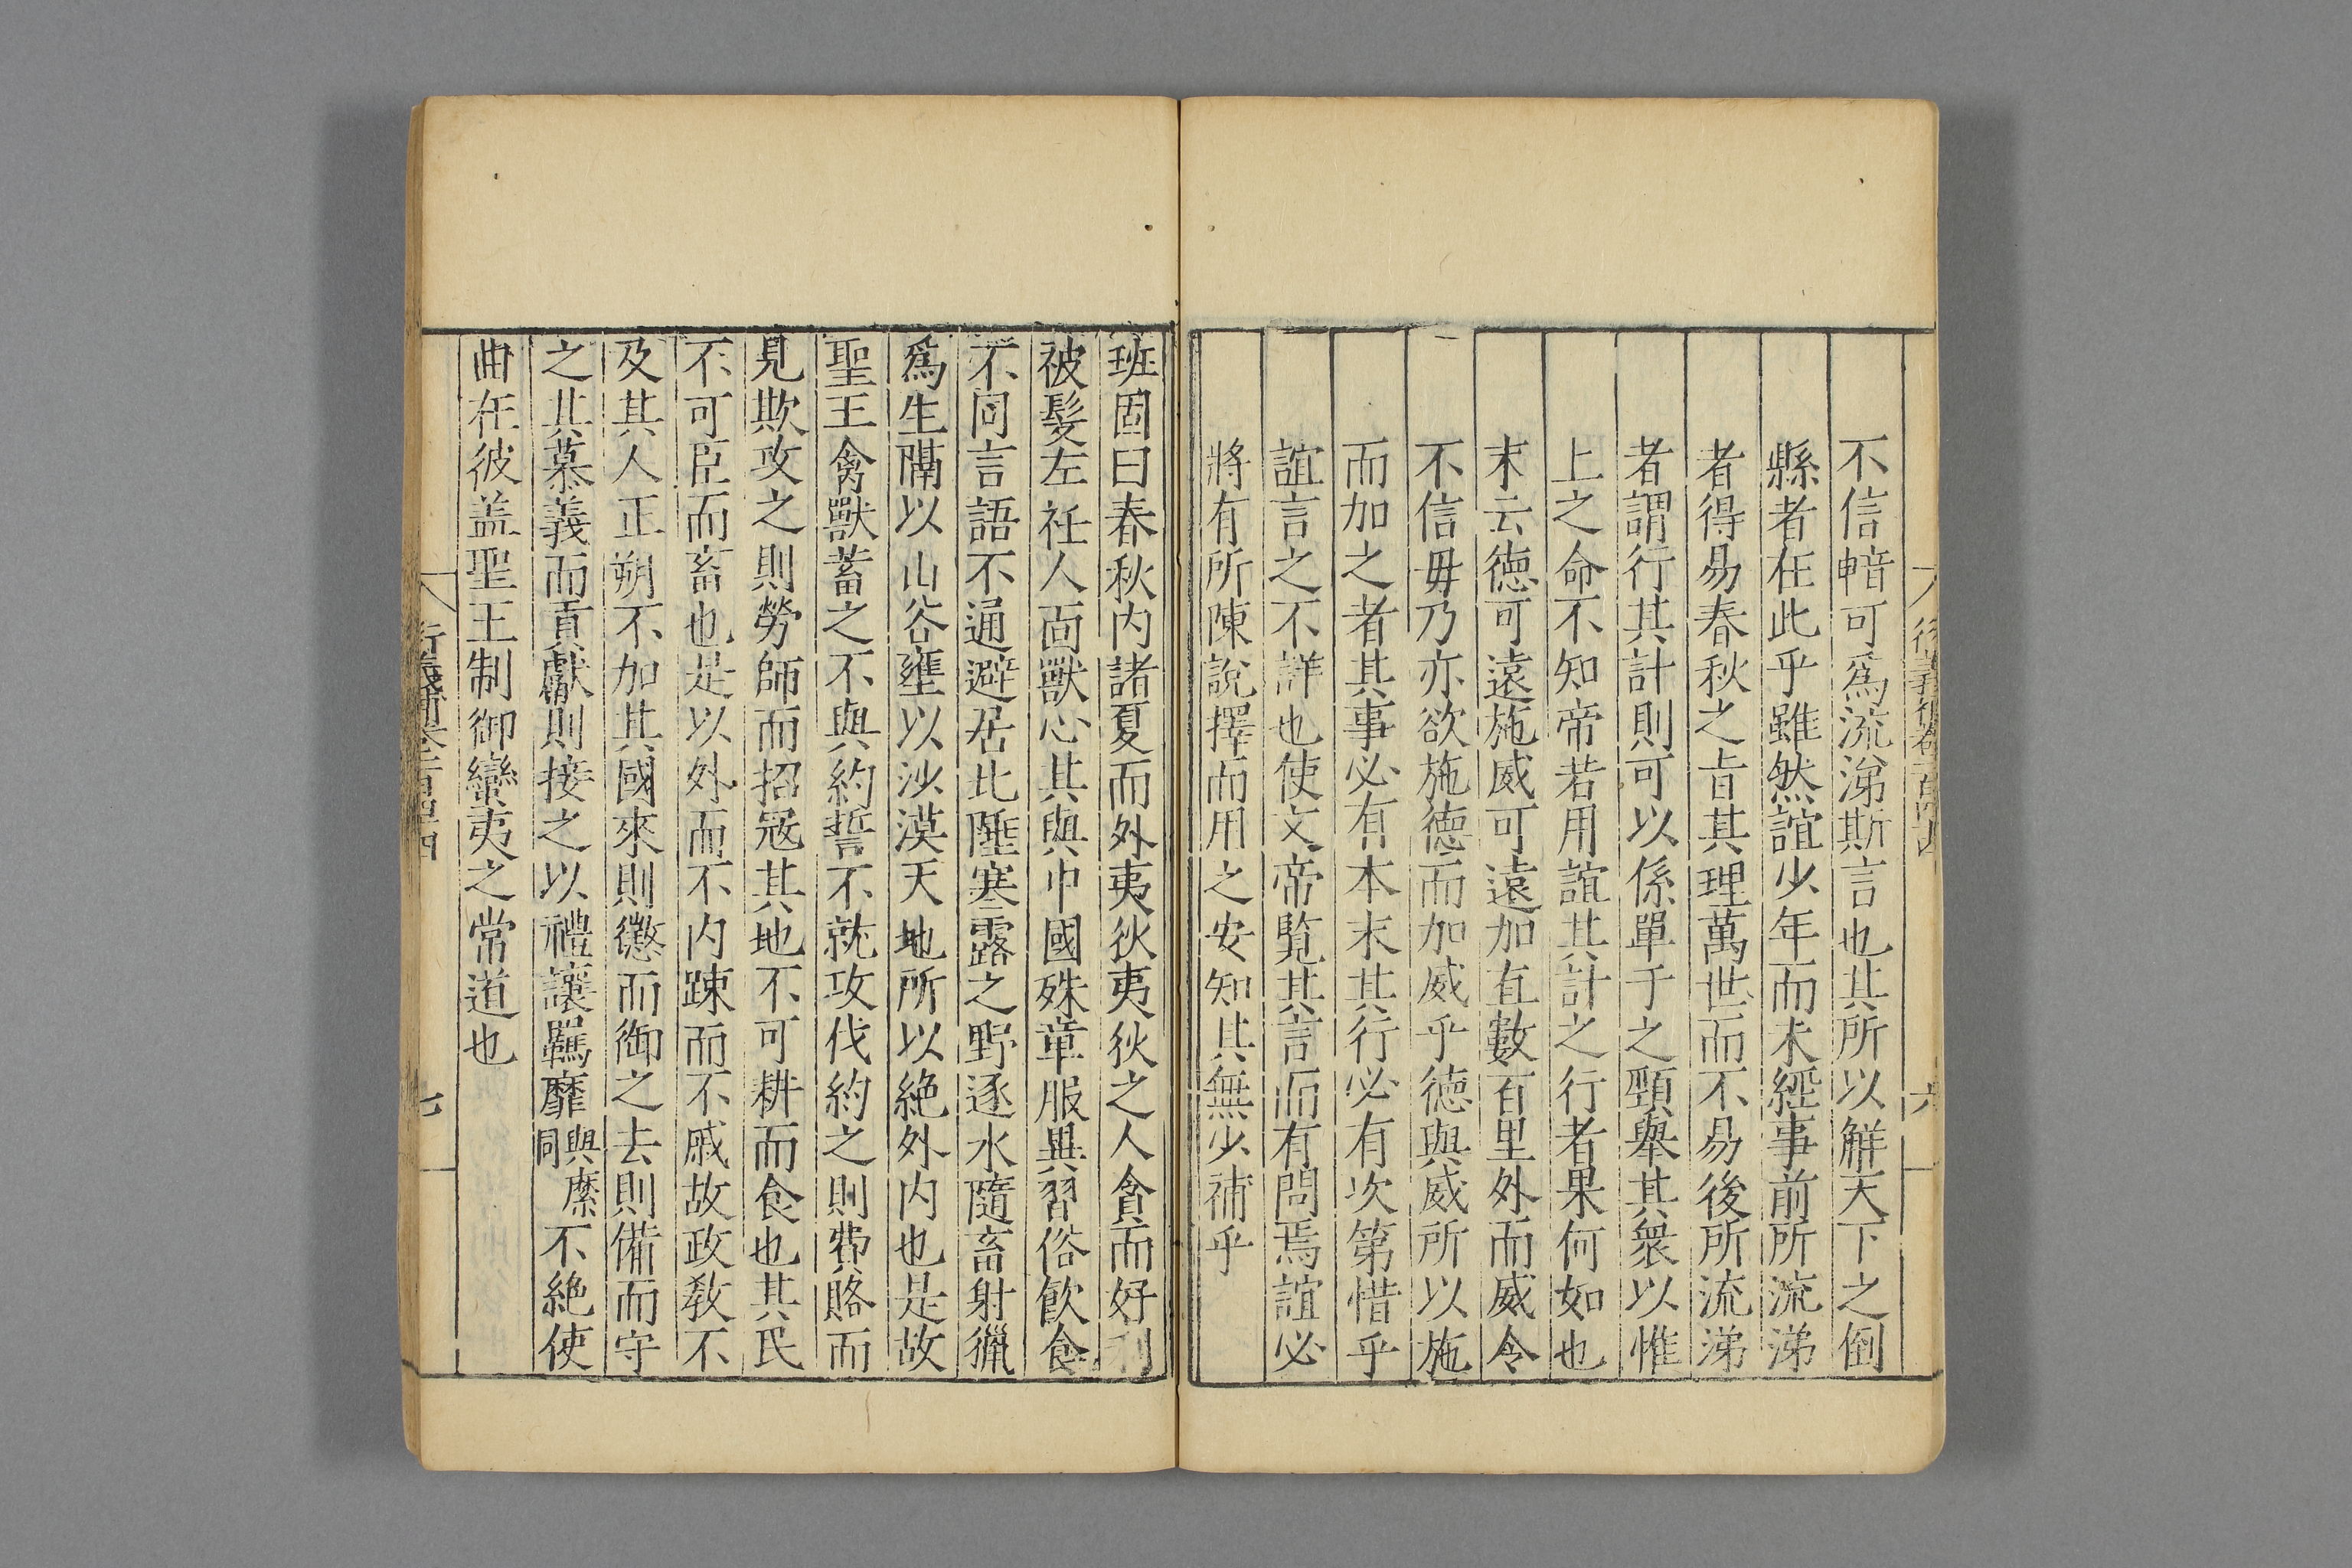 不信暗可爲流涕斯言也其所以觧天下之倒
縣者在此乎雖然誼少年而未經事前所流涕
者得易春秋之旨其理萬世而不易後所流涕
者謂行其計則可以係單于之頸舉其衆以惟
上之命不知帝若用誼其計之行者果何如也
末云德可遠施威可遠加直數百里外而威令
不信毋乃亦欲施德而加威乎德與威所以施
而加之者其事必有本末其行必有次第惜乎
誼言之不詳也使文帝覧其言而有問焉誼必
將有所陳說擇而用之安知其無少補乎
班固曰春秋内諸夏而外夷狄夷狄之人貪而好利
被髮左衽人面獸心其與中國殊章服異習俗飲食
不同言語不通避居北陲寒露之野逐水隨畜射獵
爲生隔以山谷壅以沙漠天地所以絶外内也是故
聖王禽獸蓄之不與約誓不就攻伐約之則費賂而
見欺攻之則勞師而招冦其地不可耕而食也其民
不可臣而畜也是以外而不内踈而不戚故政敎不
及其人正朔不加其國來則懲而御之去則備而守
之其慕義而貢獻則接之以禮讓羈靡與縻同不絶使
曲在彼盖聖王制御蠻夷之常道也
七